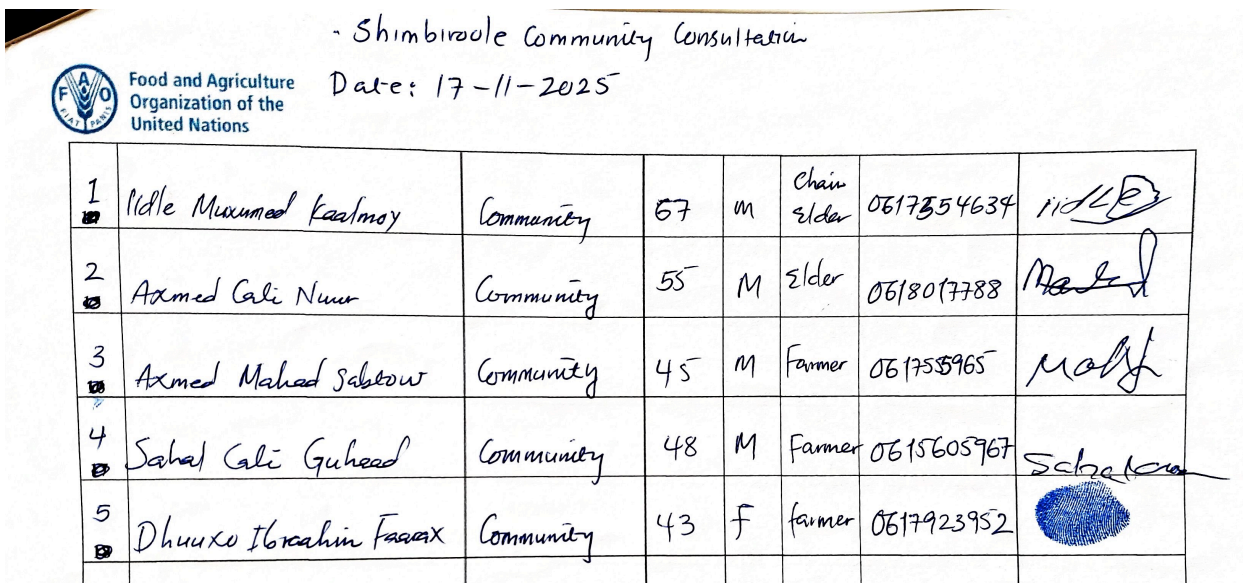 - Shimbiroole Community Consultation
Food and Agriculture Organization of the United Nations
FAO
FIAT PANIS
Date: 17-11-2025
1 Iidle Muxumed Kaalmoy Community 67 M Chair Elder 0617554634 iidle
2 Axmed Cali Nuur Community 55 M Elder 0618017788
3 Axmed Mahad Sabtow Community 45 M Farmer 061755965
4 Sahal Cali Guheed Community 48 M Farmer 0615605967
5 Dhuuxo Ibraahin Faarax Community 43 F farmer 0617923952